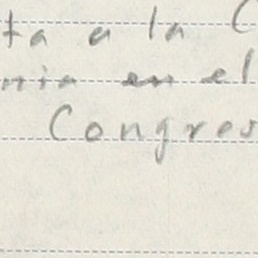 ta a la C
nia en el
Congres